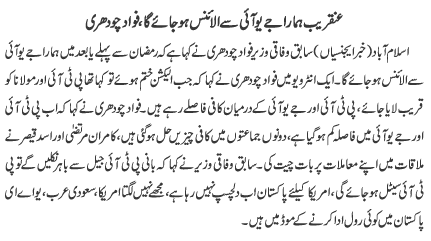 عنقریب ہمارا جے یو آئی سے الائنس ہو جائے گا، فواد چودھری
اسلام آباد (خبر ایجنسیاں) سابق وفاقی وزیر فواد چودھری نے کہا ہے کہ رمضان سے پہلے یا بعد میں ہمارا جے یو آئی
سے الائنس ہو جائے گا۔ ایک انٹرویو میں فواد چودھری نے کہا کہ جب الیکشن ختم ہوئے تو کہا تھا پی ٹی آئی اور مولانا کو
قریب لایا جائے، پی ٹی آئی اور جے یو آئی کے درمیان کافی فاصلے رہے ہیں۔ فواد چودھری نے کہا کہ اب پی ٹی آئی
اور جے یو آئی میں فاصلہ کم ہو گیا ہے، دونوں جماعتوں میں کافی چیزیں حل ہو گئی ہیں، کامران مرتضیٰ اور اسد قیصر نے
ملاقات میں اپنے معاملات پر بات چیت کی۔ سابق وفاقی وزیر نے کہا کہ بانی پی ٹی آئی جیل سے باہر نکلیں گے تو پی
ٹی آئی سیٹل ہو جائے گی، امریکا کیلئے پاکستان اب دلچسپ نہیں رہا ہے، مجھے نہیں لگتا امریکا، سعودی عرب، یو اے ای
پاکستان میں کوئی رول ادا کرنے کے موڈ میں ہیں۔